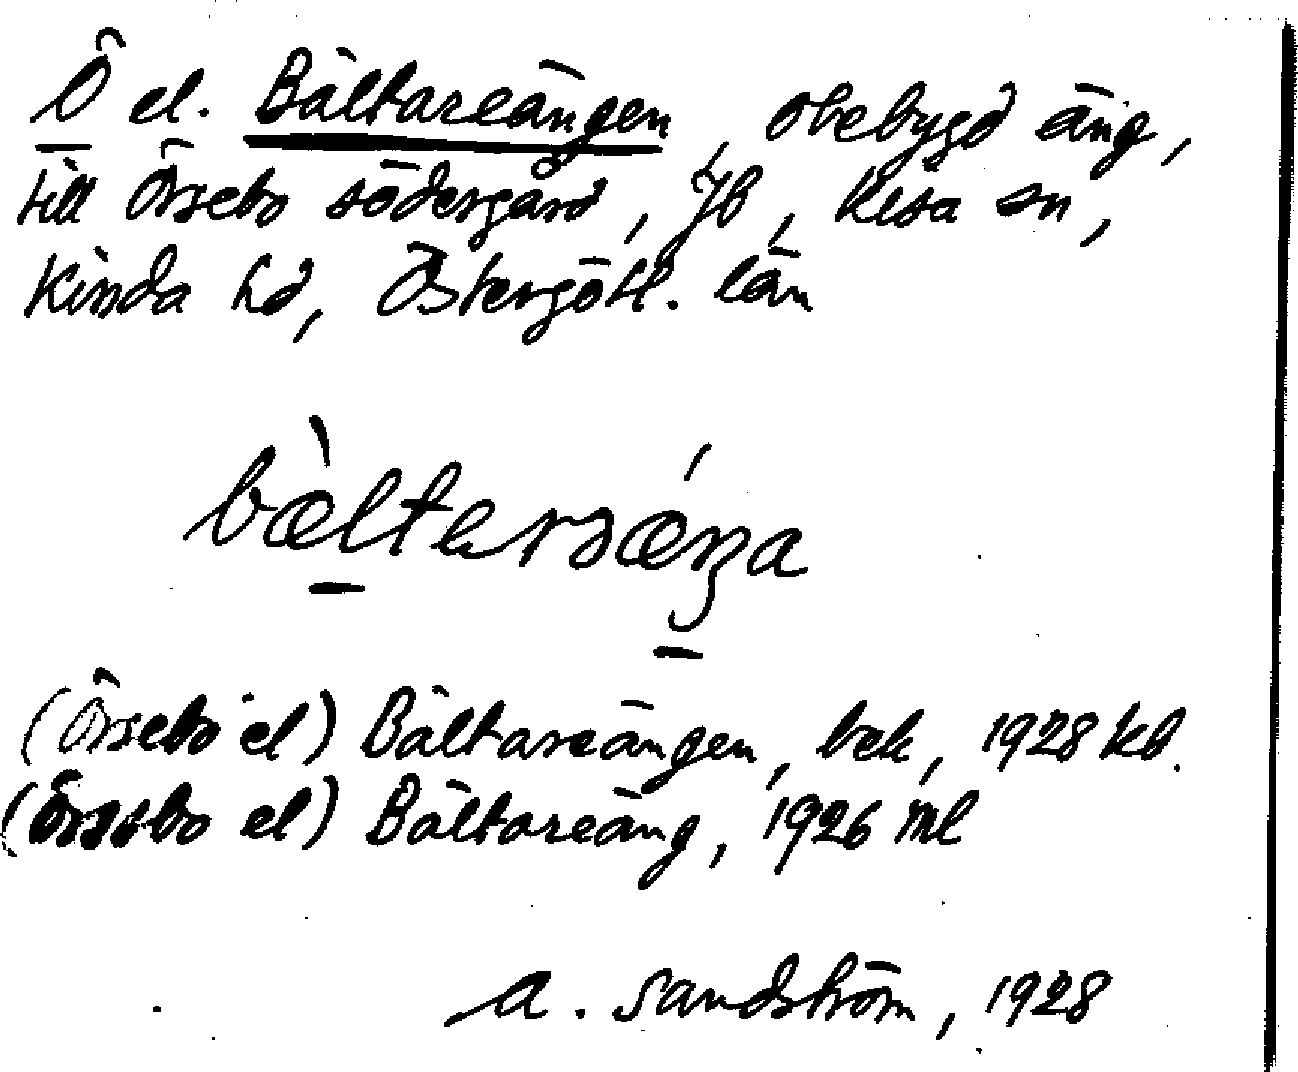 Ö el. Bältareängen, obebygd äng,
till Örsebo södergård, Yb, Kisa sn,
Kinda hd, Östergötl. län
bæ̀ltersǽŋa
(Örsebo el) Bältareängen, bek, 1928 kb.
(Örsebo el) Bältareäng, 1926 ml
A. Sandström, 1928